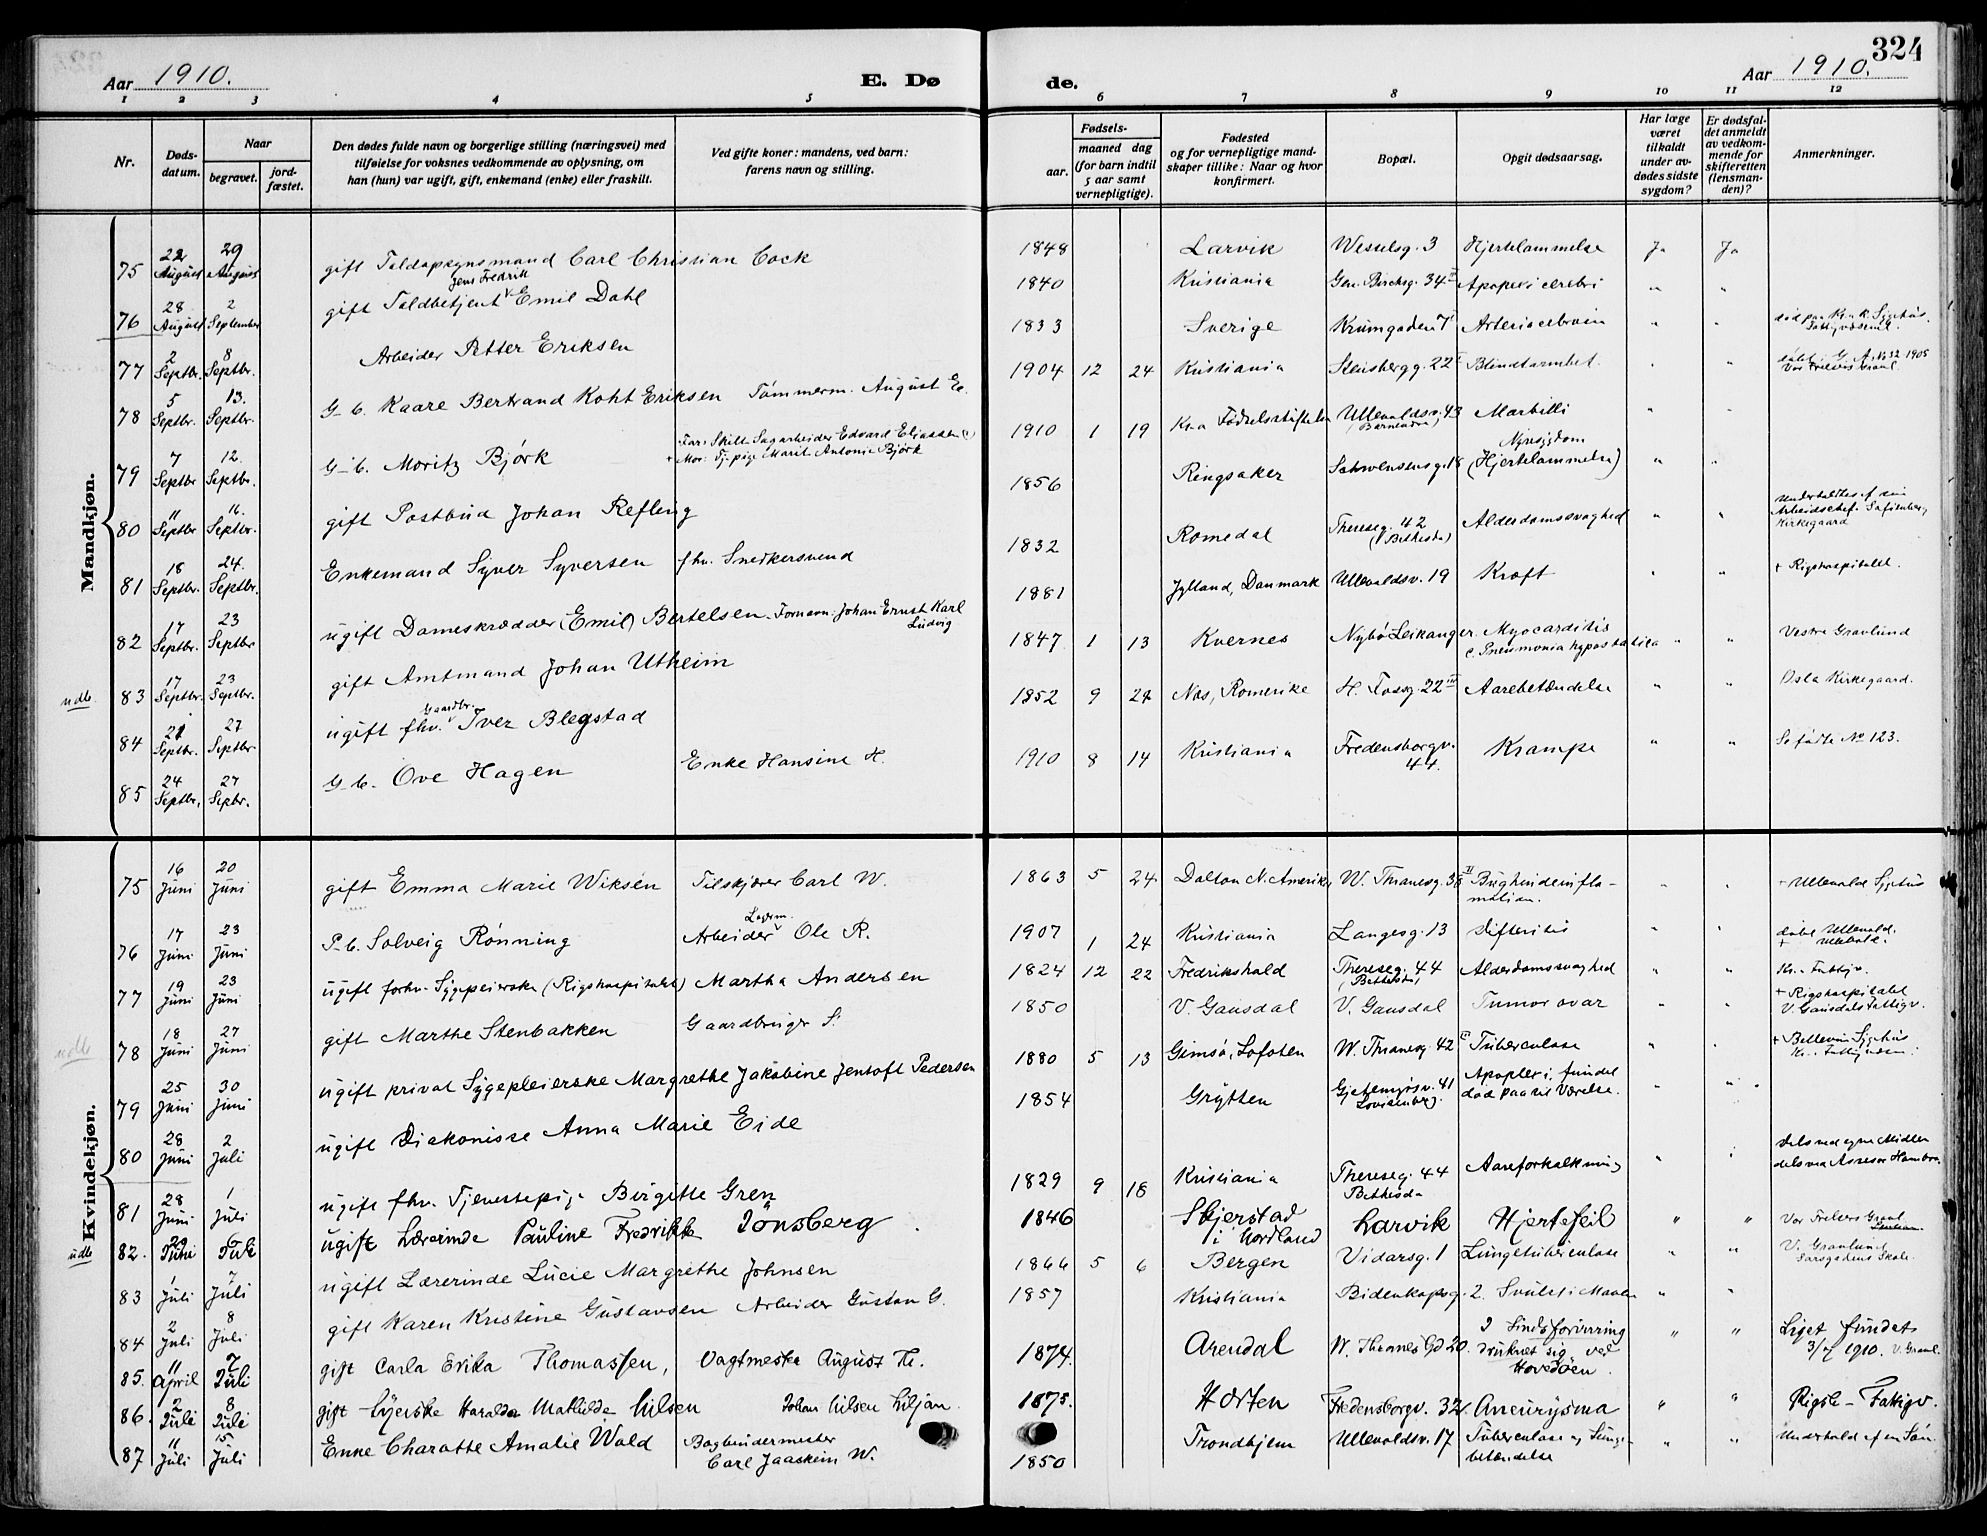 324
Aar 1910.
E. Dø
de.
Aar 1910.
1 2 3 4 5 6 7 8 9 10 11 12
Nr.
Døds-datum.
Naar
begravet.
jord-fæstet.
Den dødes fulde navn og borgerlige stilling (næringsvei) med
tilføielse for voksnes vedkommende av oplysning, om
han (hun) var ugift, gift, enkemand (enke) eller fraskilt.
Ved gifte koner: mandens, ved barn:
farens navn og stilling.
Fødsels-
aar.
maaned dag
(for barn indtil
5 aar samt
vernepligtige).
Fødested
og for vernepligtige mand-
skaper tillike: Naar og hvor
konfirmert.
Bopæl.
Opgit dødsaarsag.
Har læge
været
tilkaldt
under av-
dødes sidste
sygdom?
Er dødsfal-
det anmeldt
av vedkom-
mende for
skifteretten
(lensman-
den)?
Anmerkninger.
Mandkjøn.
75 22 August 29 August gift Toldopsynsmand Carl Christian Cock 1848 Larvik Wesselsg. 3 Hjertelammelse Ja Ja
76 28 August 2 September gift Toldbetjent Jens Fredrik Emil Dahl 1840 Kristiania Gen. Birchsg. 34 Apoplexi cerebri " "
77 2 Septbr. 8 Septbr. Arbeider Petter Eriksen 1833 Sverige Krumgaden 7 " "
78 5 Septbr. 13. Septbr. G-b. Kaare Bertrand Koht Eriksen Tømmerm. August E. 1904 12 24 Kristiania Stensbergg. 22 Blindtarmbet. " "
79 7 Septbr 12. Septbr. G-b. Moritz Bjørk Far: Skilt Sagarbeider Edvard Eliassen
Mor: Tj.pige Marit Antonie Bjørk 1910 1 19 Kr.a Fødselsstiftelse Ullevoldsv. 43 Marbilli " "
80 11 Septbr 16. Septbr. gift Postbud Johan Refling 1856 Ringsaker 18 Nyresygdom (Hjertelammelse) " "
81 18 Septbr. 24. Septbr. Enkemand Syver Syversen fhv. Snedkersvend 1832 Romedal Thereseg. 42 (Bethesda) Alderdomssvaghed " " Kirkegaard
82 17 Septbr. 23 Septbr ugift Dameskrædder (Emil) Bertelsen. Fornavn: Johan Ernst Karl Ludvig 1881 Jylland, Danmark Ullevoldsv. 19 Kræft " " + Rigshospitalet.
udb. 83 17 Septbr. 23 Septbr. gift Amtmand Johan Utheim 1847 1 13 Kvernes Nybö Leikanger. Myocarditis c. Pneumonia hypostatica " " Vestre Gravlund
84 21 Septbr. 27 Septbr ugift fhv. Gaardbr. Iver Blegstad 1852 9 24 Nes, Romerike H. Fossg. 22 Aarebetændelse " " Oslo Kirkegaard.
85 24 Septbr. 27 Septbr. G-b. Ove Hagen Enke Hansine H. 1910 8 14 Kristiania Fredensborgv. 44. Krampe " " Se fødte No 123.
Kvindekjøn.
75 16 Juni 20 Juni gift Emma Marie Wiksén Tilskjærer Carl W. 1863 5 24 Dalton N. Amerika W. Thranesg. 38 Bughindeinfla-mation. " " + Ullevold Sygehus
76 17 Juni 23 Juni P-b. Solveig Rønning Arbeider Ole R. 1907 1 24 Kristiania Langesg. 13 Difteritis " "
77 19 Juni 23 Juni ugift forhv. Sygepleierske (Rigshospitalet) Martha Andersen 1824 12 22 Fredrikshald Thereseg. 44 (Bethesda) Alderdomssvaghed " " Kr. Fattigv.
udb 78 18 Juni 27 Juni gift Marthe Stenbakken Gaardbruger S. 1850 V. Gausdal V. Gausdal Tumor ovar " " + Rigshospitalet V. Gausdals Fattigv.
79 25 Juni 30 Juni ugift privat Sygepleierske Margrethe Jakobine Jentoft Pedersen 1880 5 13 Gimsø, Lofoten W. Thranesg. 42 Tuberculose " " + Bellevue Sygehus
80 28 Juni 2 Juli ugift Diakonisse Anna Marie Eide 1854 Grytten Gjetemyrsv. 41 Lovisenberg. Apoplexi, fundet død paa sit Værelse. " "
81 28 Juni 1 Juli ugift fhv. Tjenestepige Birgitte Gren 1829 9 18 Kristiania Thereseg. 44 Bethesda Aareforkalkning " " Dels ved egne Midler dels ved Assesor Hambro.
udb 82. 29 Juni 6 Juli ugift Lærerinde Pauline Fredrikke Jönsberg 1846 Skjerstad i Nordland Larvik Hjertefeil " " Vor Frelsers Gravl.
83 1 Juli 7 Juli ugift Lærerinde Lucie Margrethe Johnsen 1866 5 6 Bergen Vidarsg. 1 Lungetuberculose " " V. Gravlund Sarsgadens Skole.
84 2 Juli 8 Juli gift Karen Kristine Gustavsen Arbeider Gustav G. 1857 Kristiania Bidenkapsg. 2. Svulst i Maven " "
85. 11 April 7 Juli gift Carla Erika Thomassen, Vagtmester August Th. 1874. Arendal W. Thranes Gd 20. I Sindsforvirring druknet sig ved Hovedøen. " " Liget fundet 3/7 1910. V. Gravl.
86. 2 Juli 8 Juli gift Syerske Haralda Mathilde Nilsen Johan Nilsen Liljan. 1875. Horten Fredensborgv. 32. Aneurysma " " Rigsh. - Fattigv.
87 11 Juli 15 Juli Enke Charlotte Amalie Wold Bogbindermester Carl Joachim W. 1850 Trondhjem Ullevoldsv. 17 Tuberculose og Lunge-betændelse " " Underhold af en Søn.